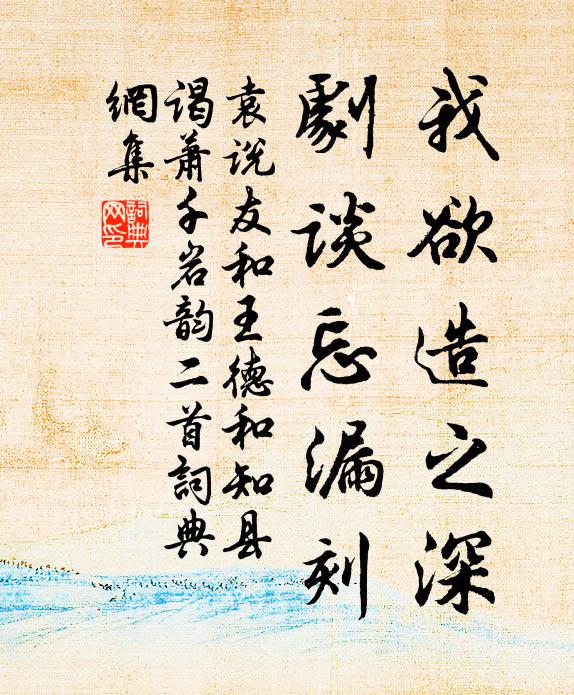 我欲造之深
劇谈忘漏刻
袁说友和王德和知县
谒萧千岩韵二首詞典
網集
詞典
网印